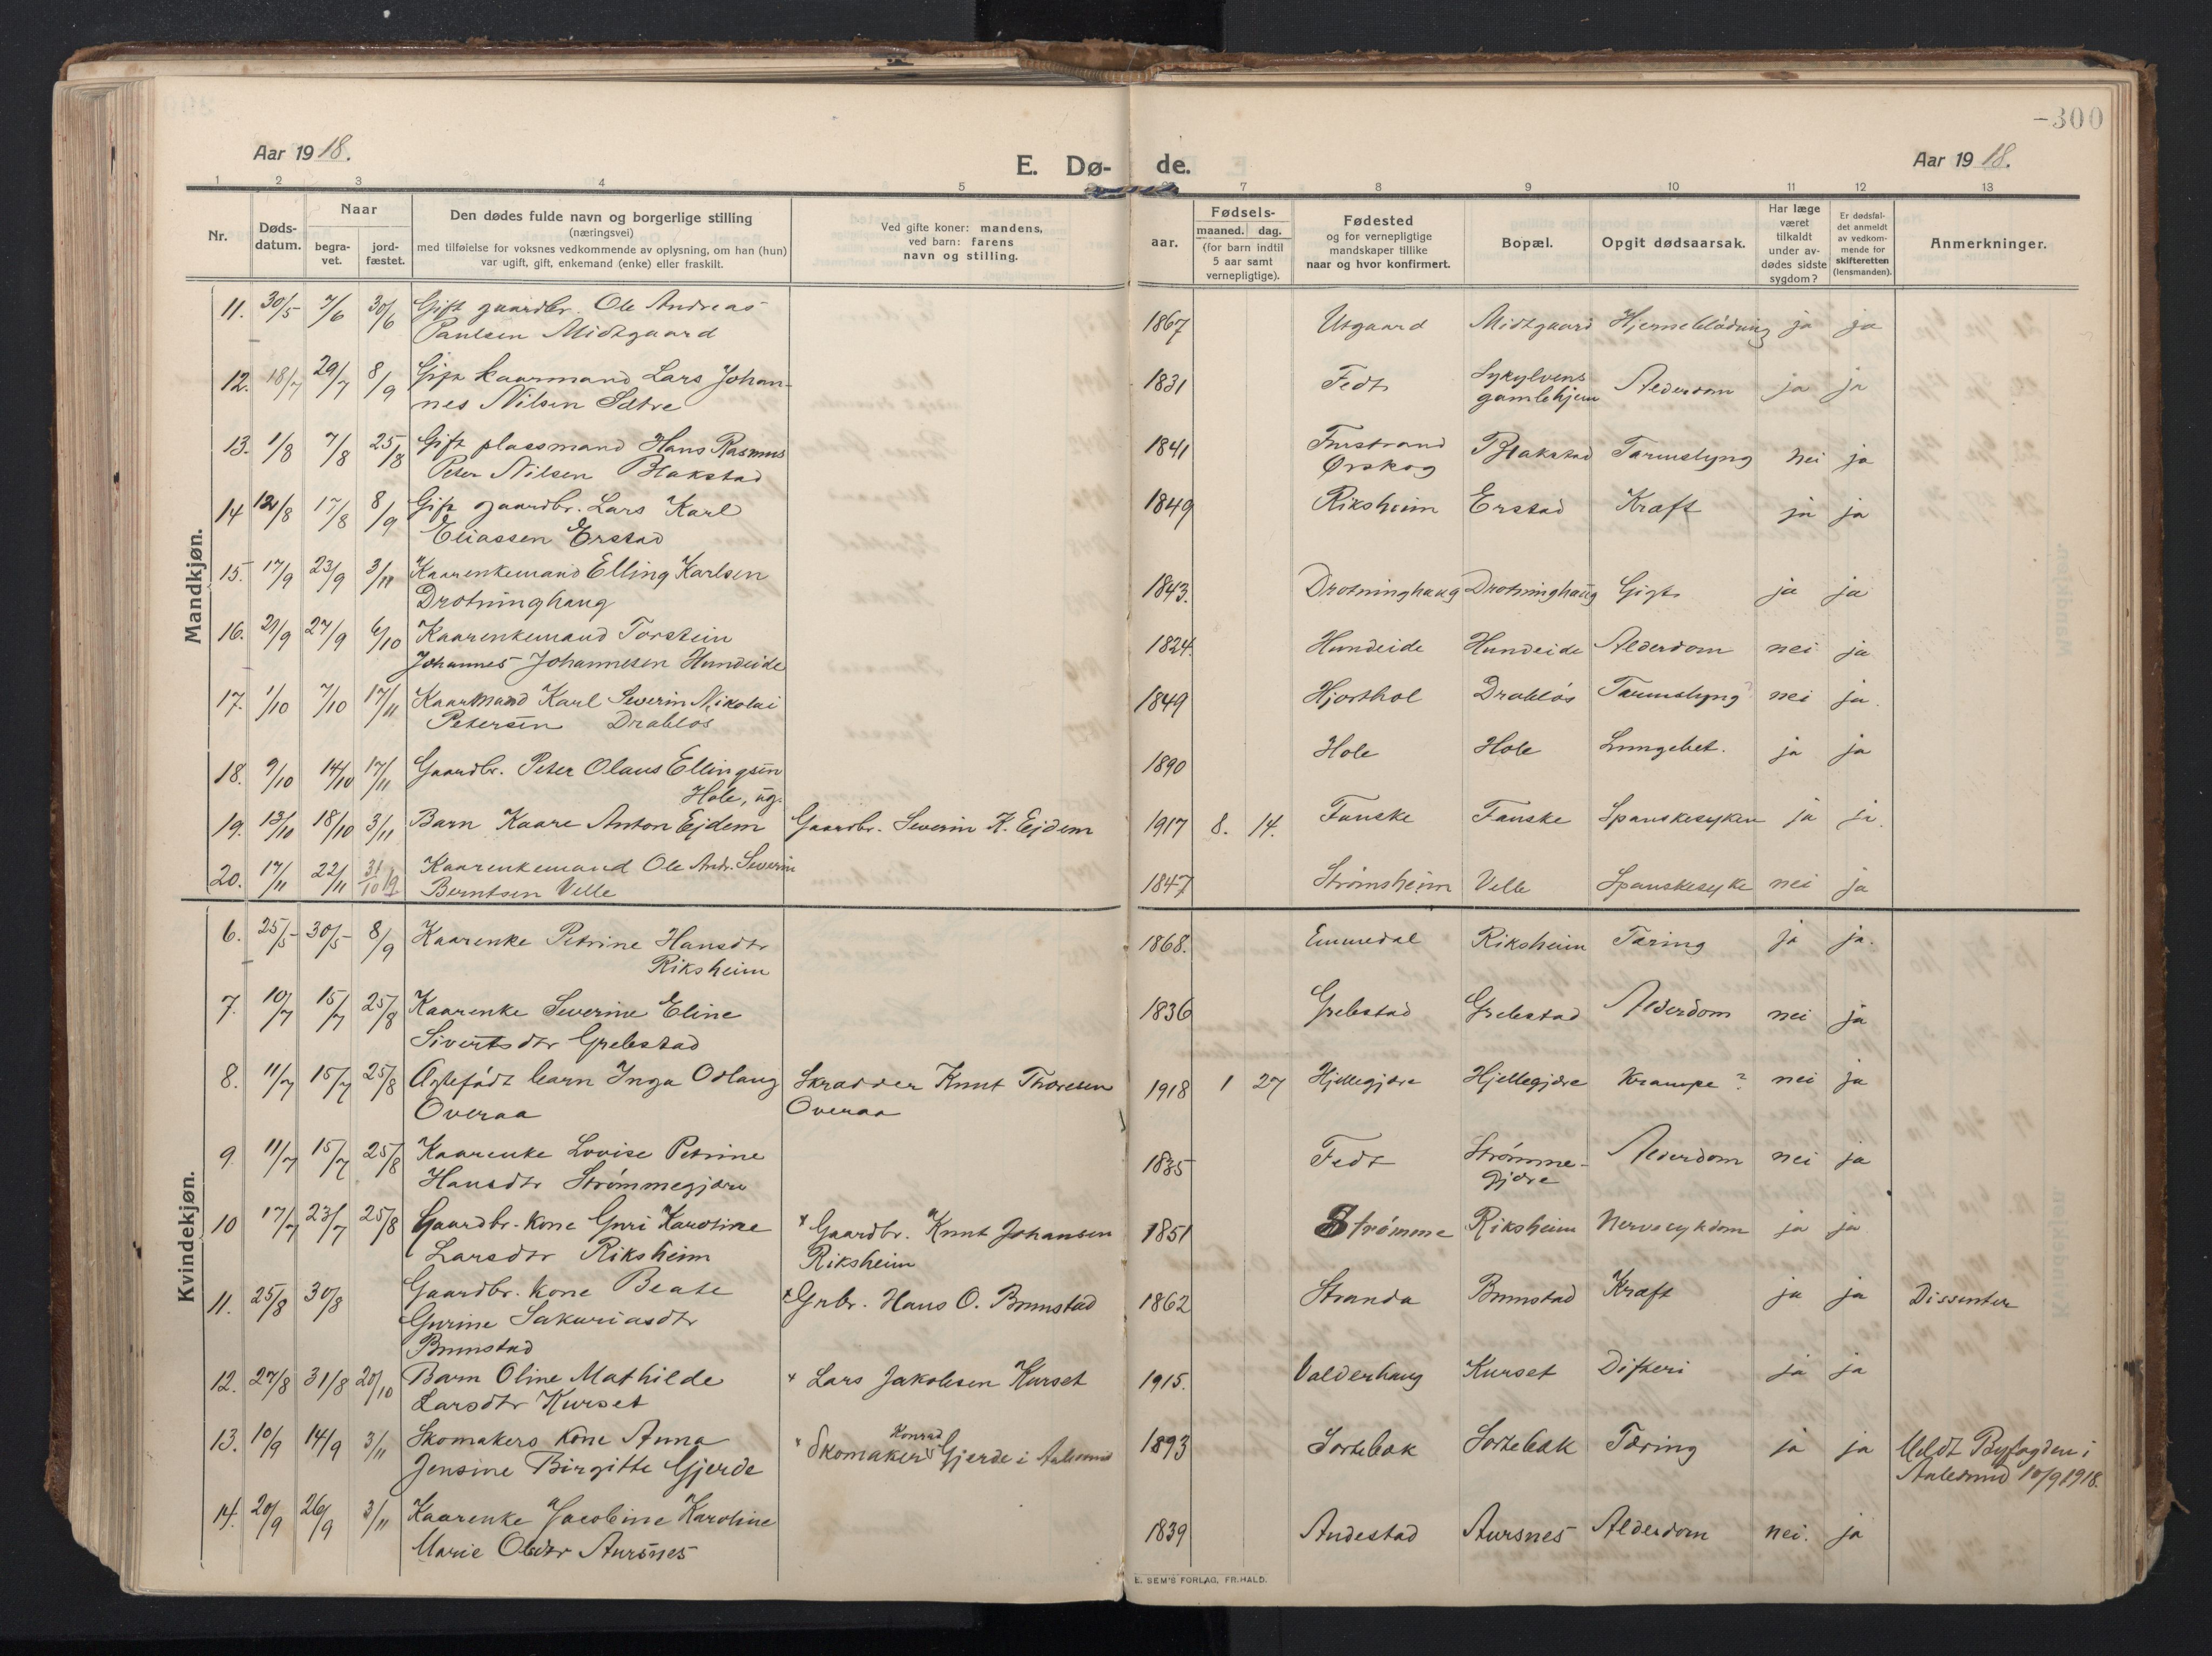 -300
Aar 1918.
E. Dø- de.
Aar 1918.
1 2 3 4 5 7 8 9 10 11 12 13
Nr.
Døds-
datum.
Naar
begra-
vet.
jord-
fæstet.
Den dødes fulde navn og borgerlige stilling
(næringsvei)
med tilføielse for voksnes vedkommende av oplysning, om han (hun)
var ugift, gift, enkemand (enke) eller fraskilt.
Ved gifte koner: mandens,
ved barn: farens
navn og stilling.
Fødsels-
aar.
maaned. dag.
(for barn indtil
5 aar samt
vernepligtige).
Fødested
og for vernepligtige
mandskaper tillike
naar og hvor konfirmert.
Bopæl.
Opgit dødsaarsak.
Har læge
været
tilkaldt
under av-
dødes sidste
sygdom?
Er dødsfal-
det anmeldt
av vedkom-
mende for
skifteretten
(lensmanden).
Anmerkninger.
Mandkjøn.
11. 30/5 7/6 30/6 Gift gaardbr. Ole Andreas 1867 Utgaard Midtgaard Hjerneblödning ja ja
Paulsen Midtgaard
12. 18/7 29/7 8/9 Gift kaarmand Lars Johan- 1831 Fedt Sykylvens Alderdom ja ja
nes Nilsen Sætre gamlehjem
13. 1/8 7/8 25/8 Gift plassmand Hans Rasmus 1841 Furstrand Blakstad Tarmslyng nei ja
Peter Nilsen Blakstad Ørskog
14 12/8 17/8 8/9 Gift gaardbr. Lars Karl 1849 Riksheim Erstad Kræft ja ja
Eliassen Erstad
15. 17/9 23/9 3/11 Kaarenkemand Elling Karlsen 1843. Drotninghaug Drotninghaug Gigt ja ja
Drotninghaug
16. 21/9 27/9 6/10 Kaarenkemand Torstein 1824. Hundeide Hundeide Alderdom nei ja
Johannes Johannesen Hundeide
17. 1/10 7/10 17/11 Kaarmand Karl Severin Nikolai 1849 Hjorthol Drabløs Tarmslyng? nei ja.
Petersen Drabløs
18. 9/10 14/10 17/11 Gaardbr. Peter Olaus Ellingsen 1890 Hole Hole Lungebet. ja ja
Hole, ug.
19. 13/10 18/10 3/11 Barn Kaare Anton Ejdem Gaardbr. Severin K. Ejdem 1917 8. 14. Fauske Fauske Spanskesyken ja ja.
20. 17/11 22/11 31/10 19 Kaarenkemand Ole Andr. Severin 1847 Strömsheim Velle Spanskesyke nei ja
Berntsen Velle
Kvindekjøn.
6. 25/5 30/5 8/9 Kaarenke Petrine Hansdtr 1868. Emmedal Riksheim Tæring ja ja.
Riksheim
7. 10/7 15/7 25/8 Kaarenke Severine Eline 1836 Grebstad Grebstad Alderdom nei ja
Sivertsdtr Grebstad
8. 11/7 15/7 25/8 Ægtefødt barn Inga Odlaug Skradder Knut Thoresen 1918 1 27 Hjellegjære Hjellegjære Krampe? nei ja
Overaa Overaa
9. 11/7 15/7 25/8 Kaarenke Lovise Petrine 1835 Fedt Strömme- Alderdom nei ja
Hansdtr Strömmegjære gjære
10 17/7 23/7 25/8 Gaardbr. kone Guri Karoline * Gaardbr. Knut Johansen 1851 Strömme Riksheim Nervesykdom ja ja
Larsdtr Riksheim Riksheim
11. 25/8 30/8 Gaardbr. kone Beate * Grbr. Hans O. Brunstad 1862 Stranda Brunstad Kræft ja ja Dissenter
Gurine Sakariasdtr
Brunstad
12. 27/8 31/8 20/10 Barn Oline Mathilde * Lars Jakobsen Kurset 1915. Valderhaug Kurset Difteri ja ja
Larsdtr Kurset
13. 10/9 14/9 3/11 Skomakers kone Anna * Skomaker Konrad Gjerde i Aalesund 1893 Sortebak Sortebak Tæring ja ja Meldt Byfogden i
Jensine Birgitte Gjerde Aalesund 10/9 1918.
14. 20/9 26/9 3/11 Kaarenke Jacobine Karoline 1839 Andestad Aursnes Alderdom nei. ja
Marie Olsdtr Aursnes
E. SEM'S FORLAG, FR.HALD.